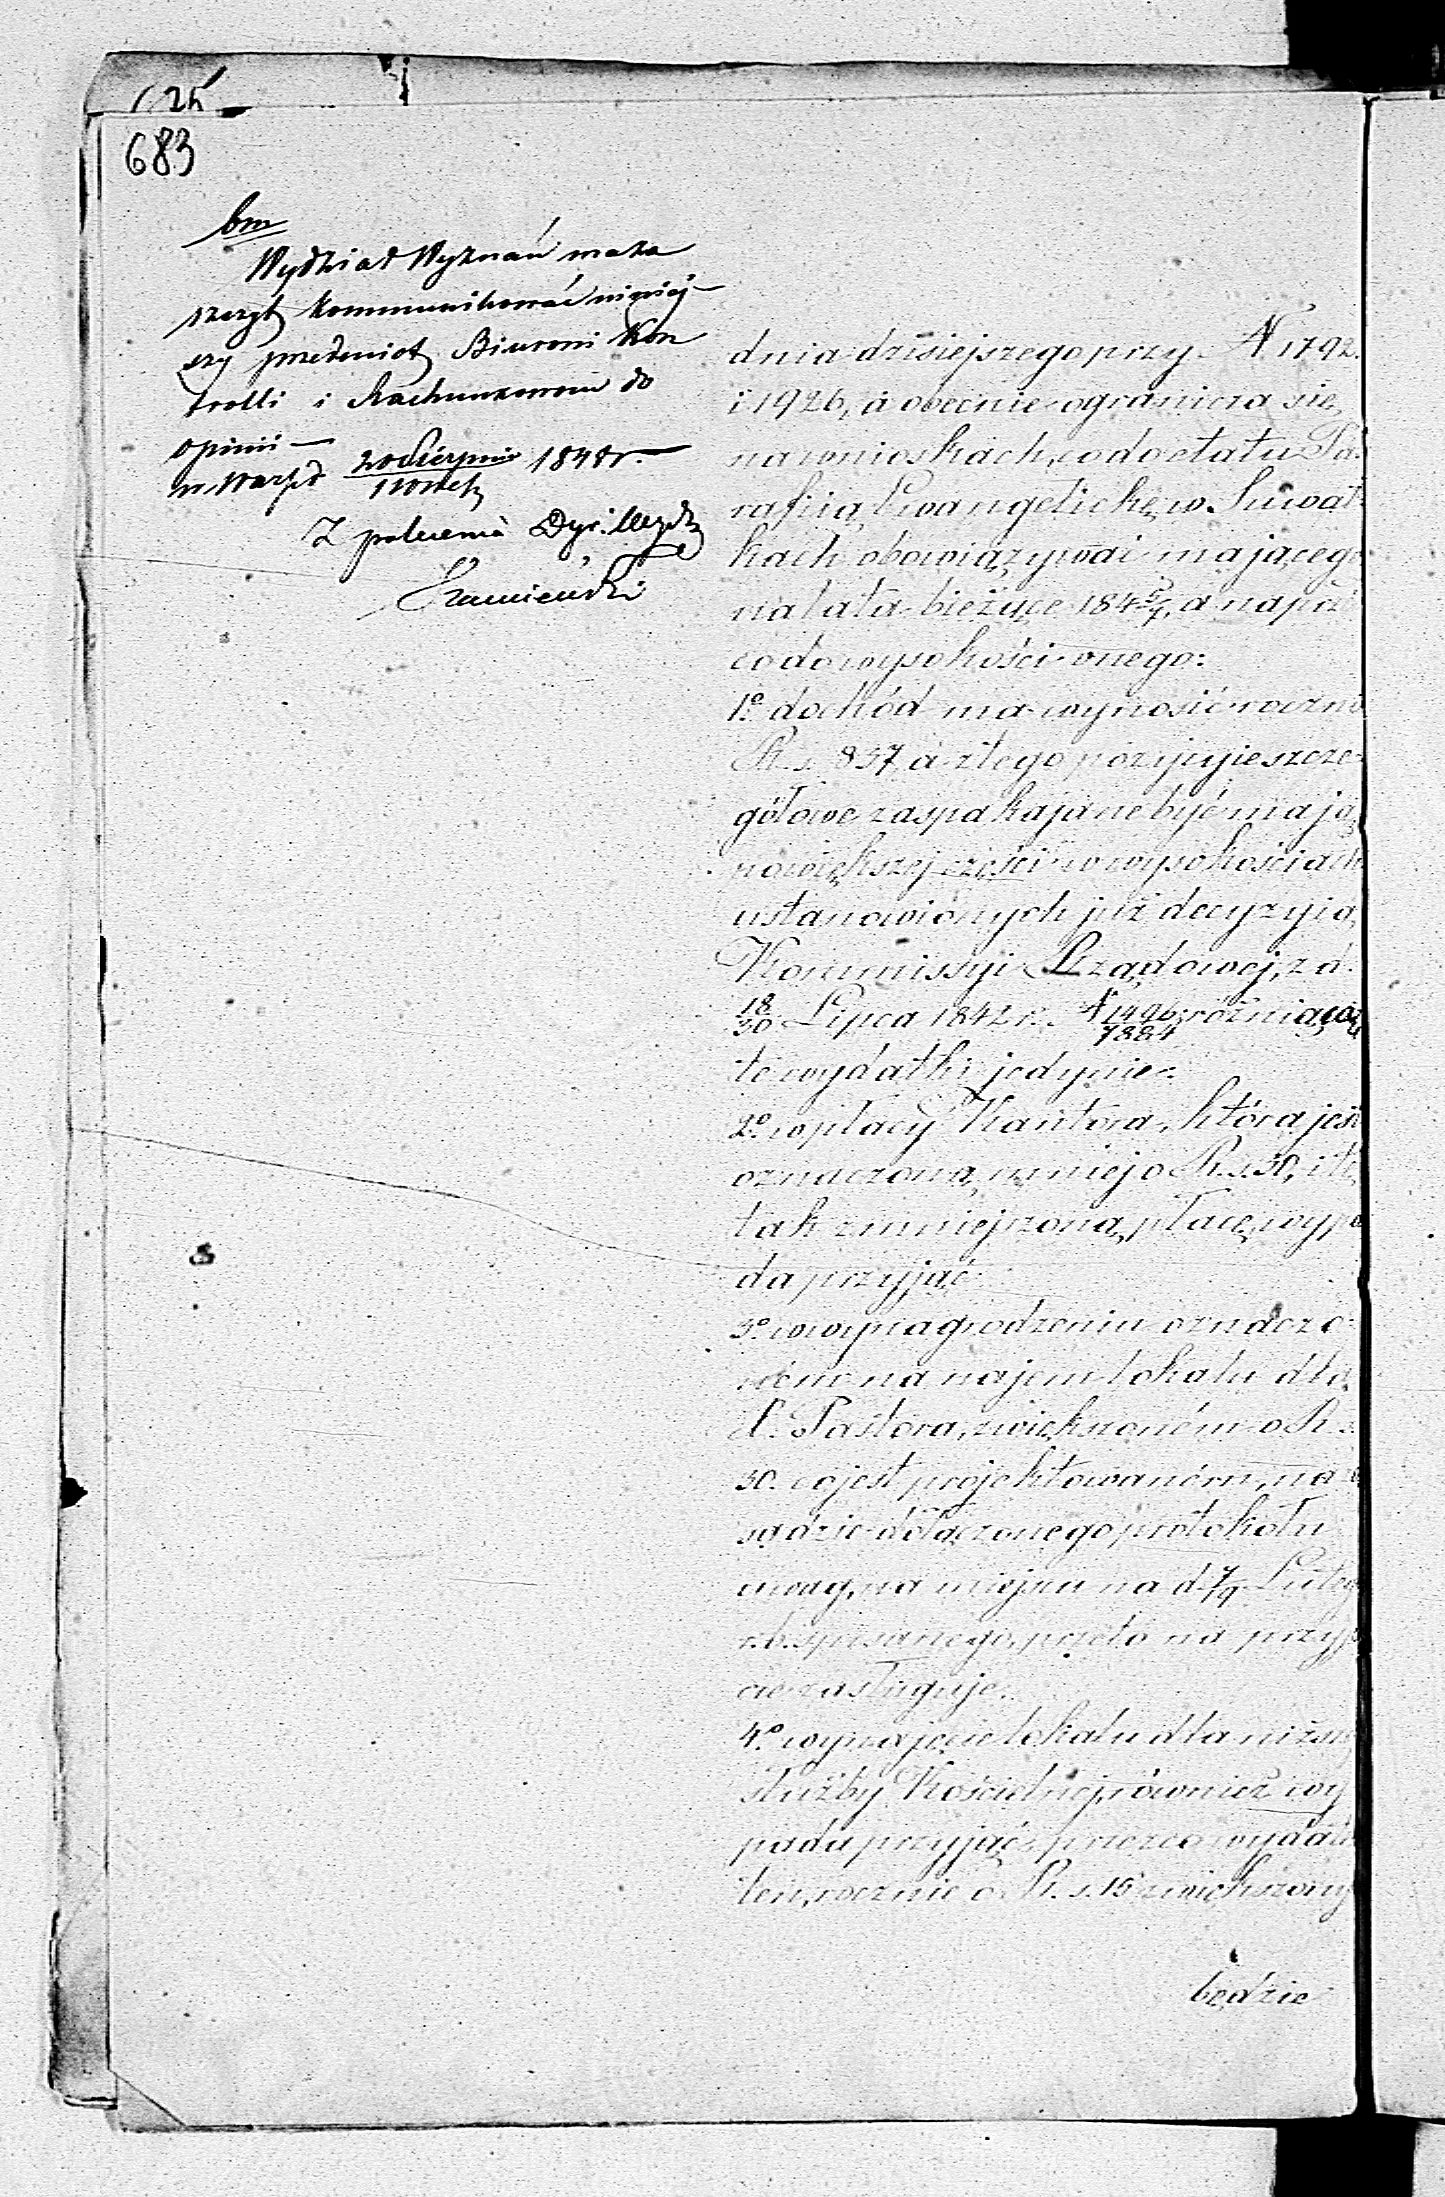 683
bm
Wydział Wyznań ma za
szczyt kommunikować niniej-
szy przedmiot Biurowi Kon
trolli i Rachunkowemu do
opinii —
20 Sierpnia 1848 r. —
1 Wrześ
Z polecenia Dyr.
dnia dzisiejszego przy N. 1792.
i 1926, a obecnie ogranicza się
na wnioskach, co do etatu Pa-
rafiią Ewangelicką w Suwał-
kach obowiązywać mającego
na lata bieżące 184 , a napró
co do wysokości onego:
1º dochód ma wynosić roczni
R. s. 857, a z tego pozycyje szcze-
gółowe zaspakajane być mają
po większej części w wysokościach
ustanowionych już decyzyią
Kommissyi Rządowej, z d.
18/30 Lipca 1842 r. N. 1496/7884 różnią się
te wydatki jedynie:
2º w płacy Kantora, która jest
oznaczoną mniej o R. s. 30, i tę
tak zmniejszoną płacę, wypa
da przyjąć.
3º w wynagrodzeniu oznaczo-
ném na najem lokalu dla
X. Pastora, zwiększoném o R. s.
30. co jest projektowaném, na
sadzie dołączonego protokołu
uwag, na miejscu na d. Luteg
r. b. spisanego, przeto na przyję
cie zasługuje.
4º wynajęcie lokalu dla niższej
służby Kościelnej, również wy
pada przyjąć, przezco wydatek
ten, rocznie o R. s. 15 zwiększony
będzie